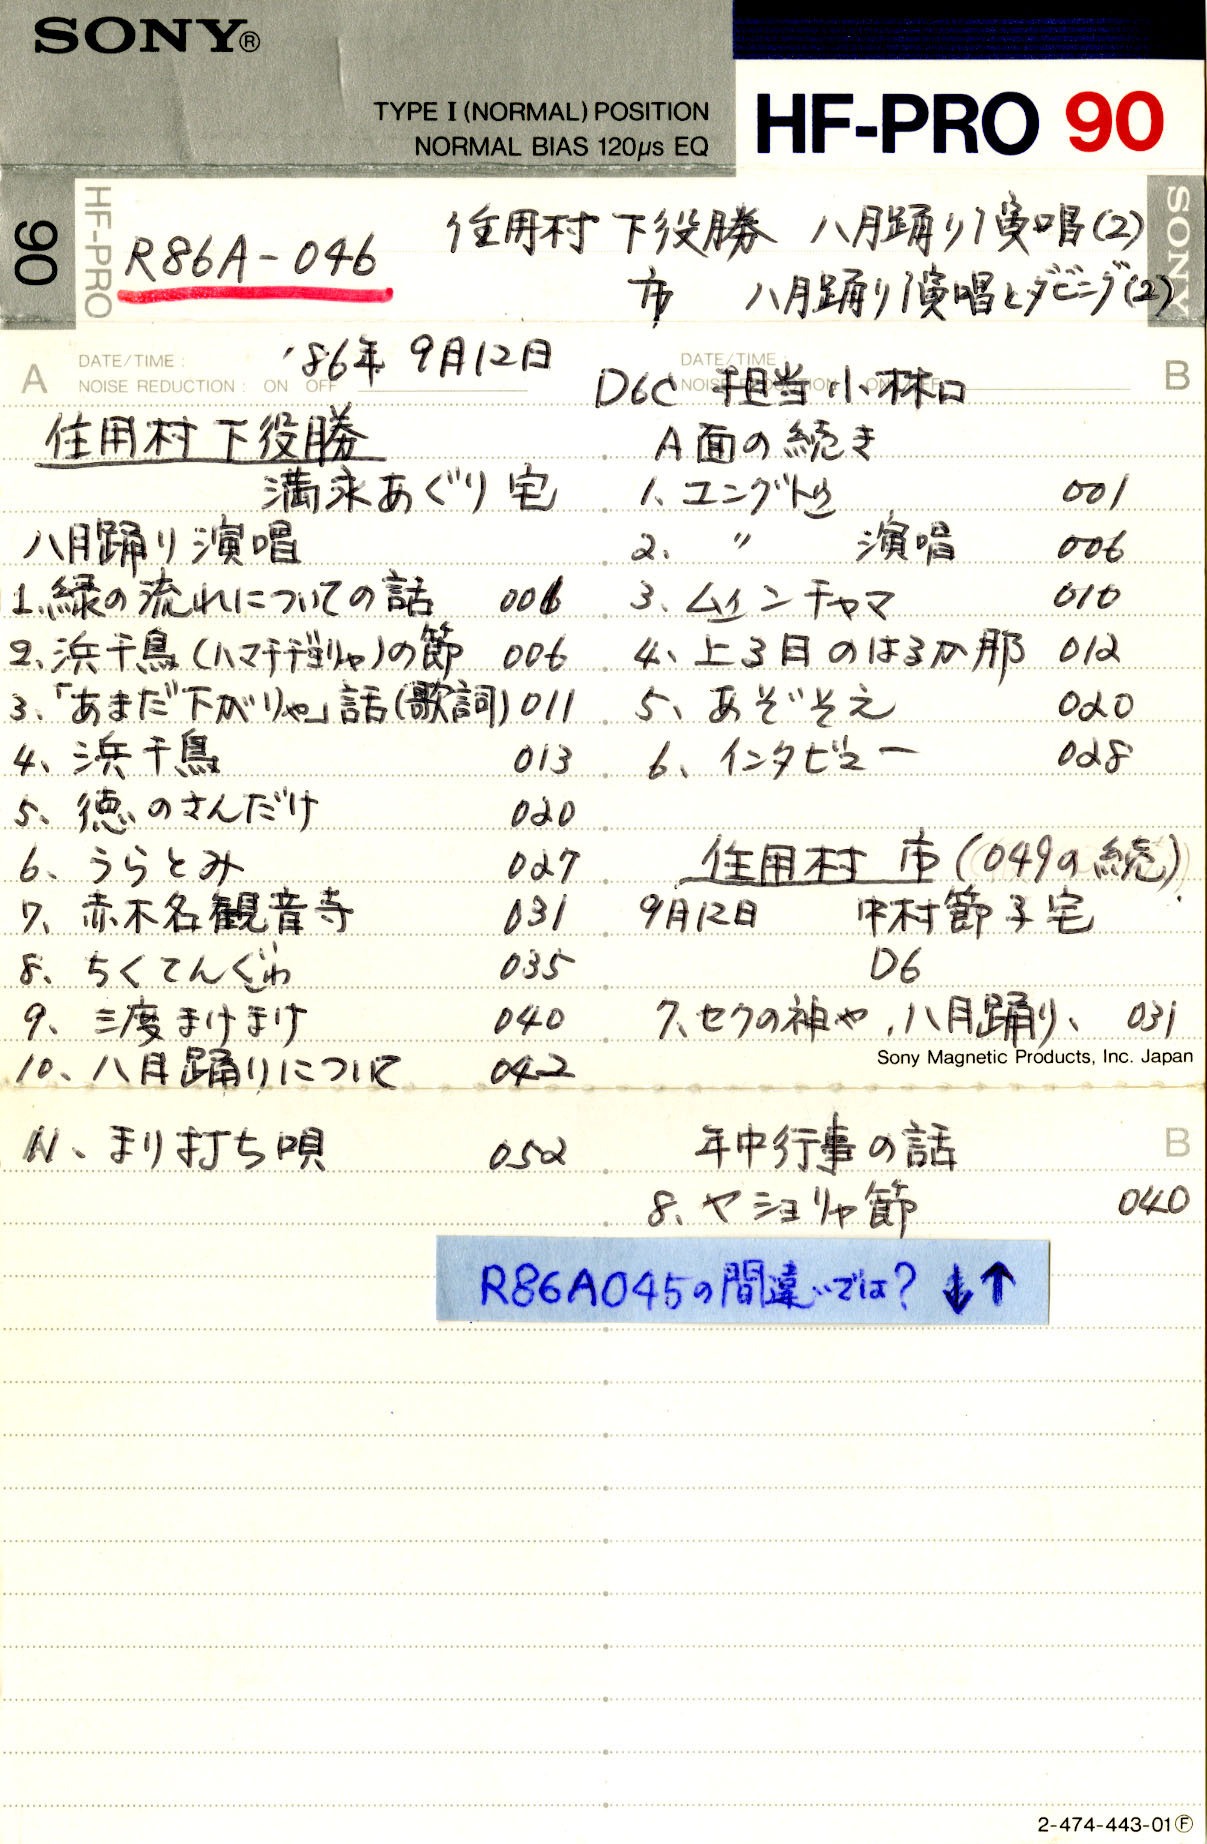 SONY®
TYPE I (NORMAL) POSITION
NORMAL BIAS 120μs EQ
HF-PRO 90
90
HF-PRO
R86A-046
住用村 下役勝 八月踊り演唱(2)
市 八月踊り演唱とダビング(2)
SONY
A
DATE/TIME:
NOISE REDUCTION: ON OFF
'86年 9月12日
住用村下役勝
満永あぐり宅
八月踊り演唱
1、緑の流れについての話 001
2、浜千鳥(ハマチヂョリャ)の節 006
3、「あまだ下がりゃ」話(歌詞) 011
4、浜千鳥 013
5、徳のさんだけ 020
6、うらとみ 027
7、赤木名観音寺 031
8、ちくてんぐゎ 035
9、三度まけまけ 040
10、八月踊りについて 042
11、まり打ち唄 052
B
DATE/TIME:
NOISE REDUCTION: ON OFF
D6C 担当 小林口
A面の続き
1、ユングトゥ 001
2、〃 演唱 006
3、ムィンチャマ 010
4、上る目のはるか那 012
5、あぞそえ 020
6、インタビュー 028
住用村 市(049の続)
9月12日 中村節子宅
D6
7、セクの神や、八月踊り、 031
Sony Magnetic Products, Inc. Japan
年中行事の話
B
8、ヤショリャ節 040
R86A045の間違いでは? ↓↑
2-474-443-01Ⓕ